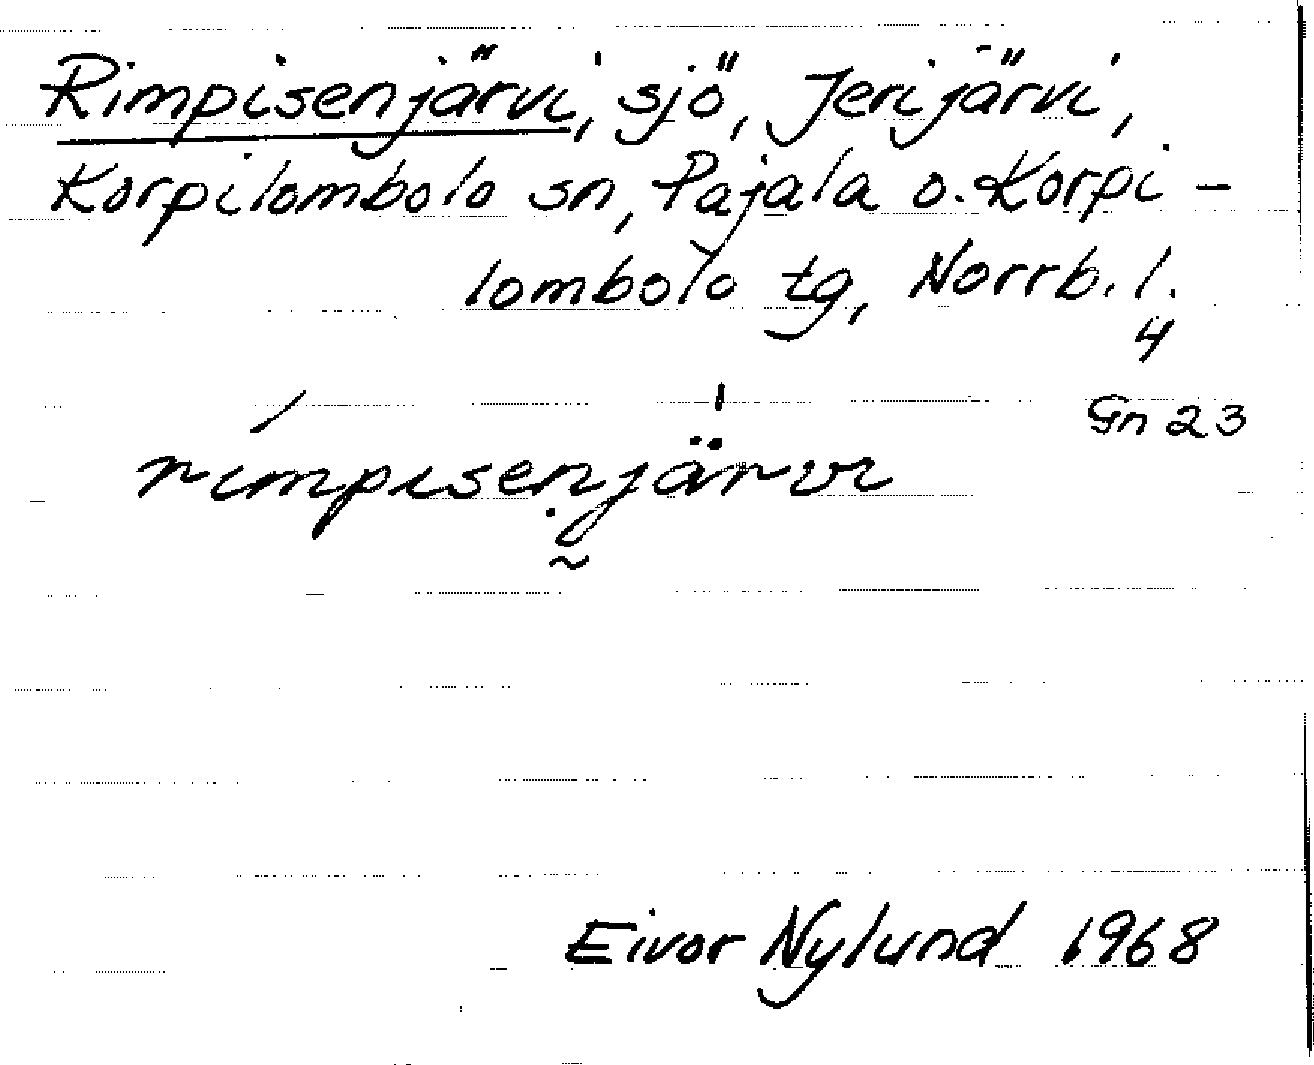 Rimpisenjärvi, sjö, Jerijärvi,
Korpilombolo sn, Pajala o. Korpi-
lombolo tg, Norrb. l.
4
Gn 23
rímpisenjärvi
Eivor Nylund 1968